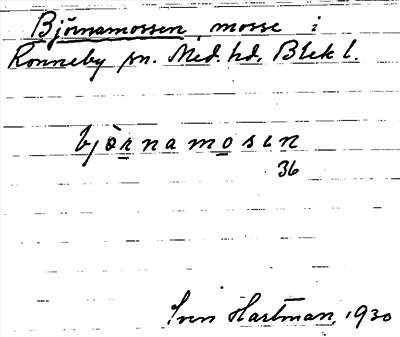 Björnamossen, mosse i
Ronneby sn. Med. hd, Blek l.
bjò̱rnamo̱sen
36
Sven Hartman, 1930